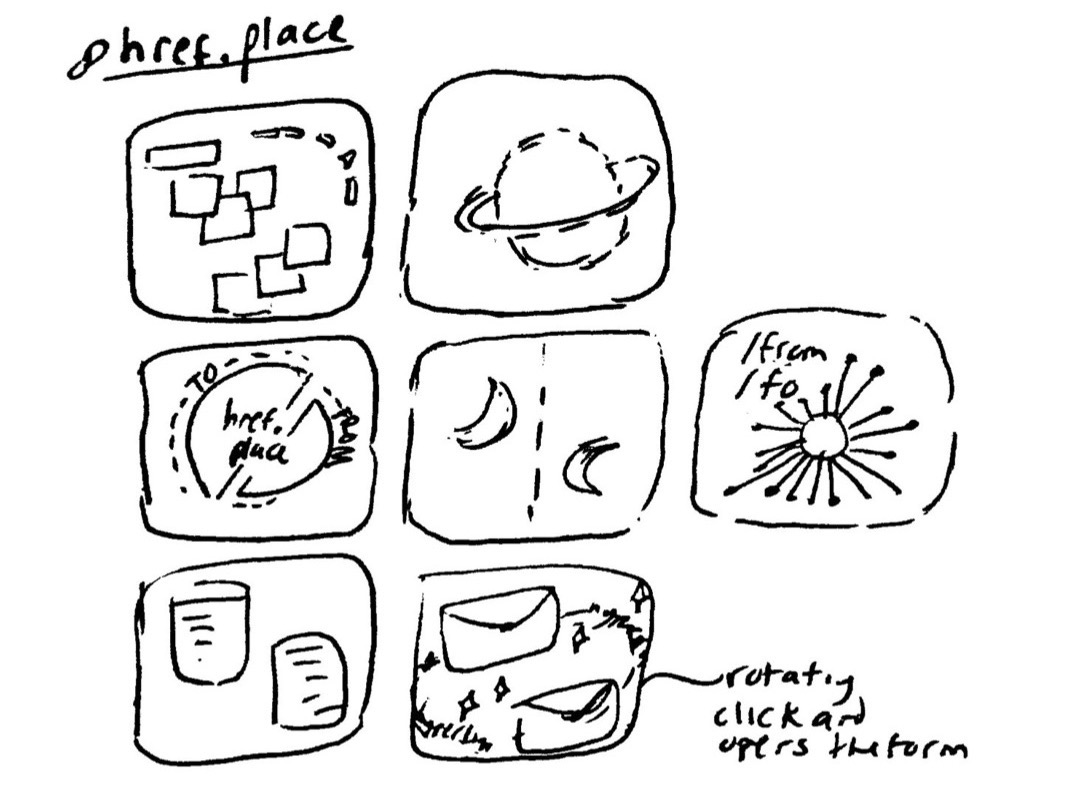 href.place
TO
href.
place
/from
/to
rotating
click and
opens the form